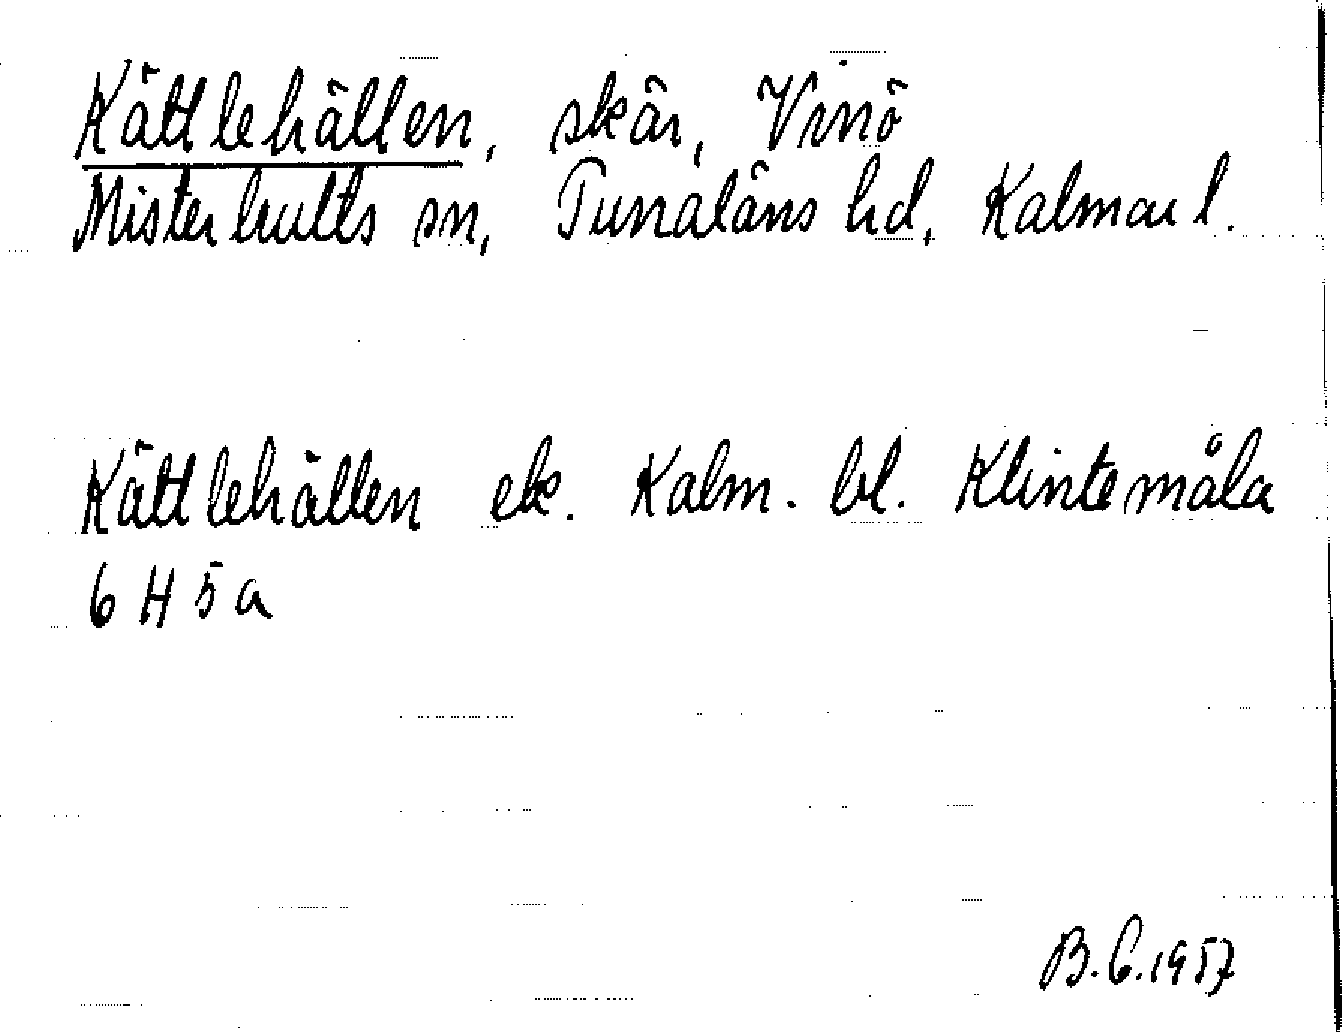 Kättlehällen, skär, Vinö
Misterhults sn, Tunaläns hd, Kalmar l.
Kättlehällen ek. Kalm. bl. Klintemåla
6 H 5 a
B.C.1957